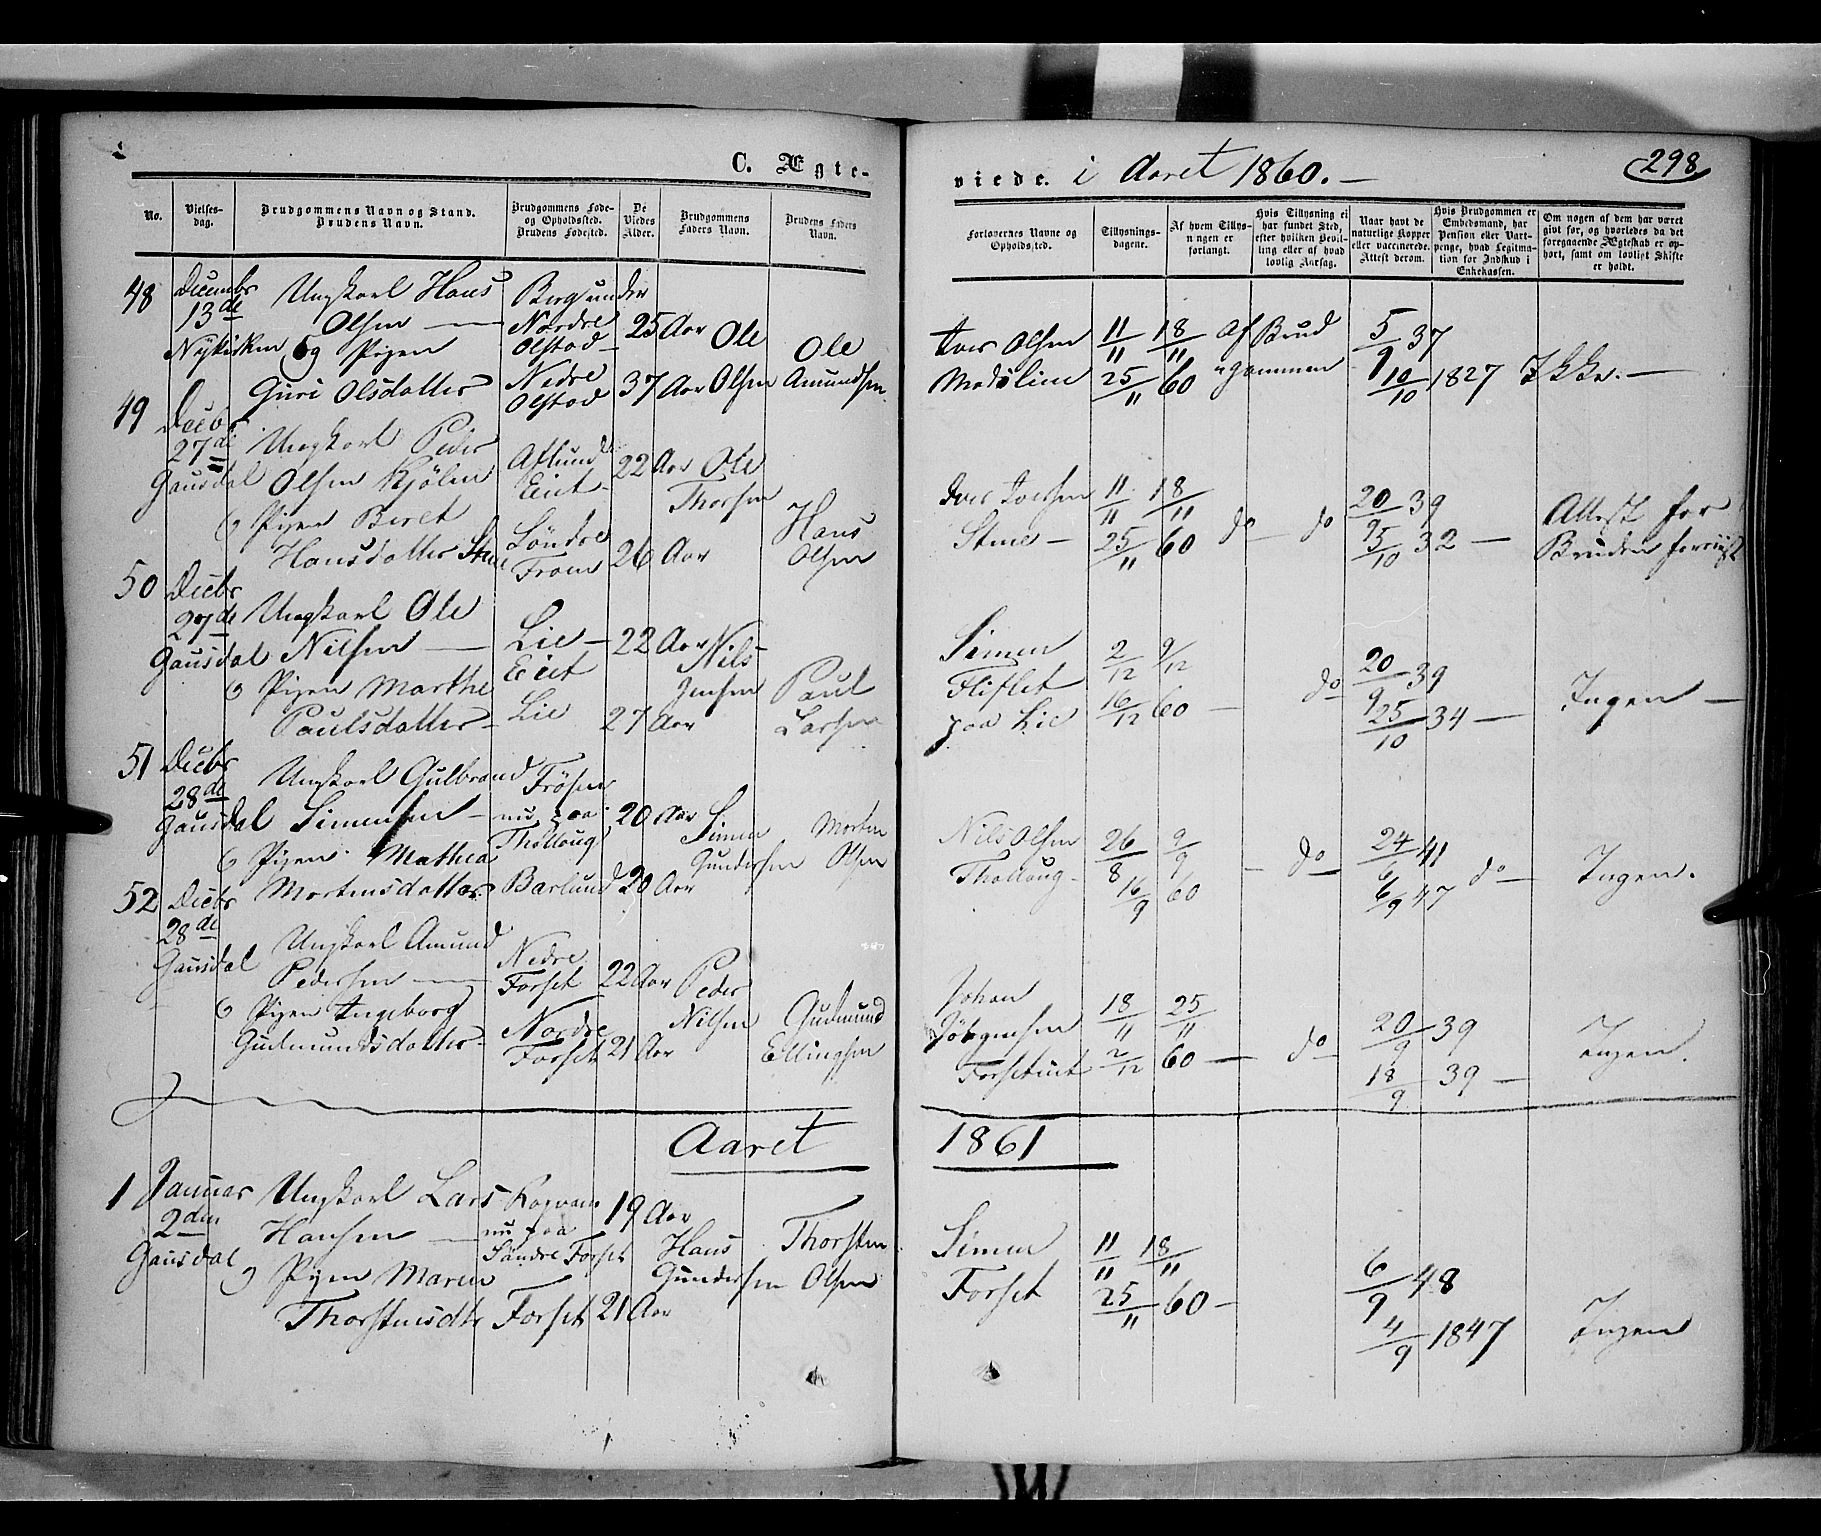 C. Ægte-
viede. i Aaret 1860. —
298
No.
Vielses-
dag.
Brudgommens Navn og Stand.
Brudens Navn.
Brudgommens Føde-
og Opholdssted.
Brudens Fødested.
De
Viedes
Alder.
Brudgommens
Faders Navn.
Brudens Faders
Navn.
Forlovernes Navne og
Opholdssted.
Tillysnings-
dagene.
Af hvem Tillys-
ningen er
forlangt.
Hvis Tillysning ei
har fundet Sted,
efter hvilken Bevil-
ling eller af hvad
lovlig Aarsag.
Naar havt de
naturlige Kopper
eller vaccinerede.
Attest derom.
Hvis Brudgommen er
Embedsmand, har
Pension eller Vart-
penge, hvad Legitima-
tion for Indskud i
Enkekassen.
Om nogen af dem har været
gift før, og hvorledes da det
foregaaende Ægteskab er op-
hørt, samt om lovligt Skifte
er holdt.
48 Decembr 13de Nykirken
Ungkarl Hans
Olsen —
Og Pigen
Guri Olsdatter
Nordre
Olstad —
Nedre
Olstad
25 Aar
37 Aar
Ole
Olsen
Ole
Amundsen
Iver Olsen
11/11 18/11
25/11 60
Af Brud
gommen
5/9 37
10/10 1827
Ikke. —
49 Decbr 27de Gausdal
Ungkarl Peder
Olsen Kjølen
Pigen Beret
Hansdatter Stine
Eiet
Søndre
Fram
22 Aar
26 Aar
Ole
Thorsen
Hans
Olsen
Iver Iversen
Stine —
11/11 18/11
25/11 60
do — do
20/9 39
5/10 32 —
Attest for
Bruden
50 Decbr 27de Gausdal
Ungkarl Ole
Nilsen —
Pigen Marthe
Paulsdatter —
Lie —
Eiet
Lie
22 Aar
27 Aar
Nils
Jensen
Paul
Larsen
Simen
Fliflet
paa Lie
2/12 9/12
16/12 60 —
do
20/9 39
25/10 34 —
Ingen —
51 Decbr 28de Gausdal
Ungkarl Gulbrand
Simensen —
Pigen Mathea
Mortensdatter
Frøsen
nu paa
Thollaug
Barlund
20 Aar
20 Aar
Simen
Gundersen
Morten
Olsen
Nils Olsen
Thollaug —
26/8 9/9
16/9 60
— do —
24/6 41
6/9 47
do —
Ingen.
52 Decbr 28de Gausdal
Ungkarl Amund
Pedersen —
Pigen Ingeborg
Gudmundsdatter —
Nedre
Forset
Nordre
Forset
22 Aar
21 Aar
Peder
Nilsen
Gudmund
Ellingsen
Johan
Jørgensen
Forseteiet
18/11 25/11
2/12 60 —
do
20/9 39
18/9 39 —
Ingen.
Aaret 1861
1 Januar 2den Gausdal
Ungkarl Lars
Hansen —
Pigen Maren
Thorstensdtr
nu paa
Søndre Forset
Forset
19 Aar
21 Aar
Hans
Gundersen
Thorsten
Olsen
Simen
Forset
11/11 18/11
25/11 60 —
6/9 48
4/9 1847
Ingen